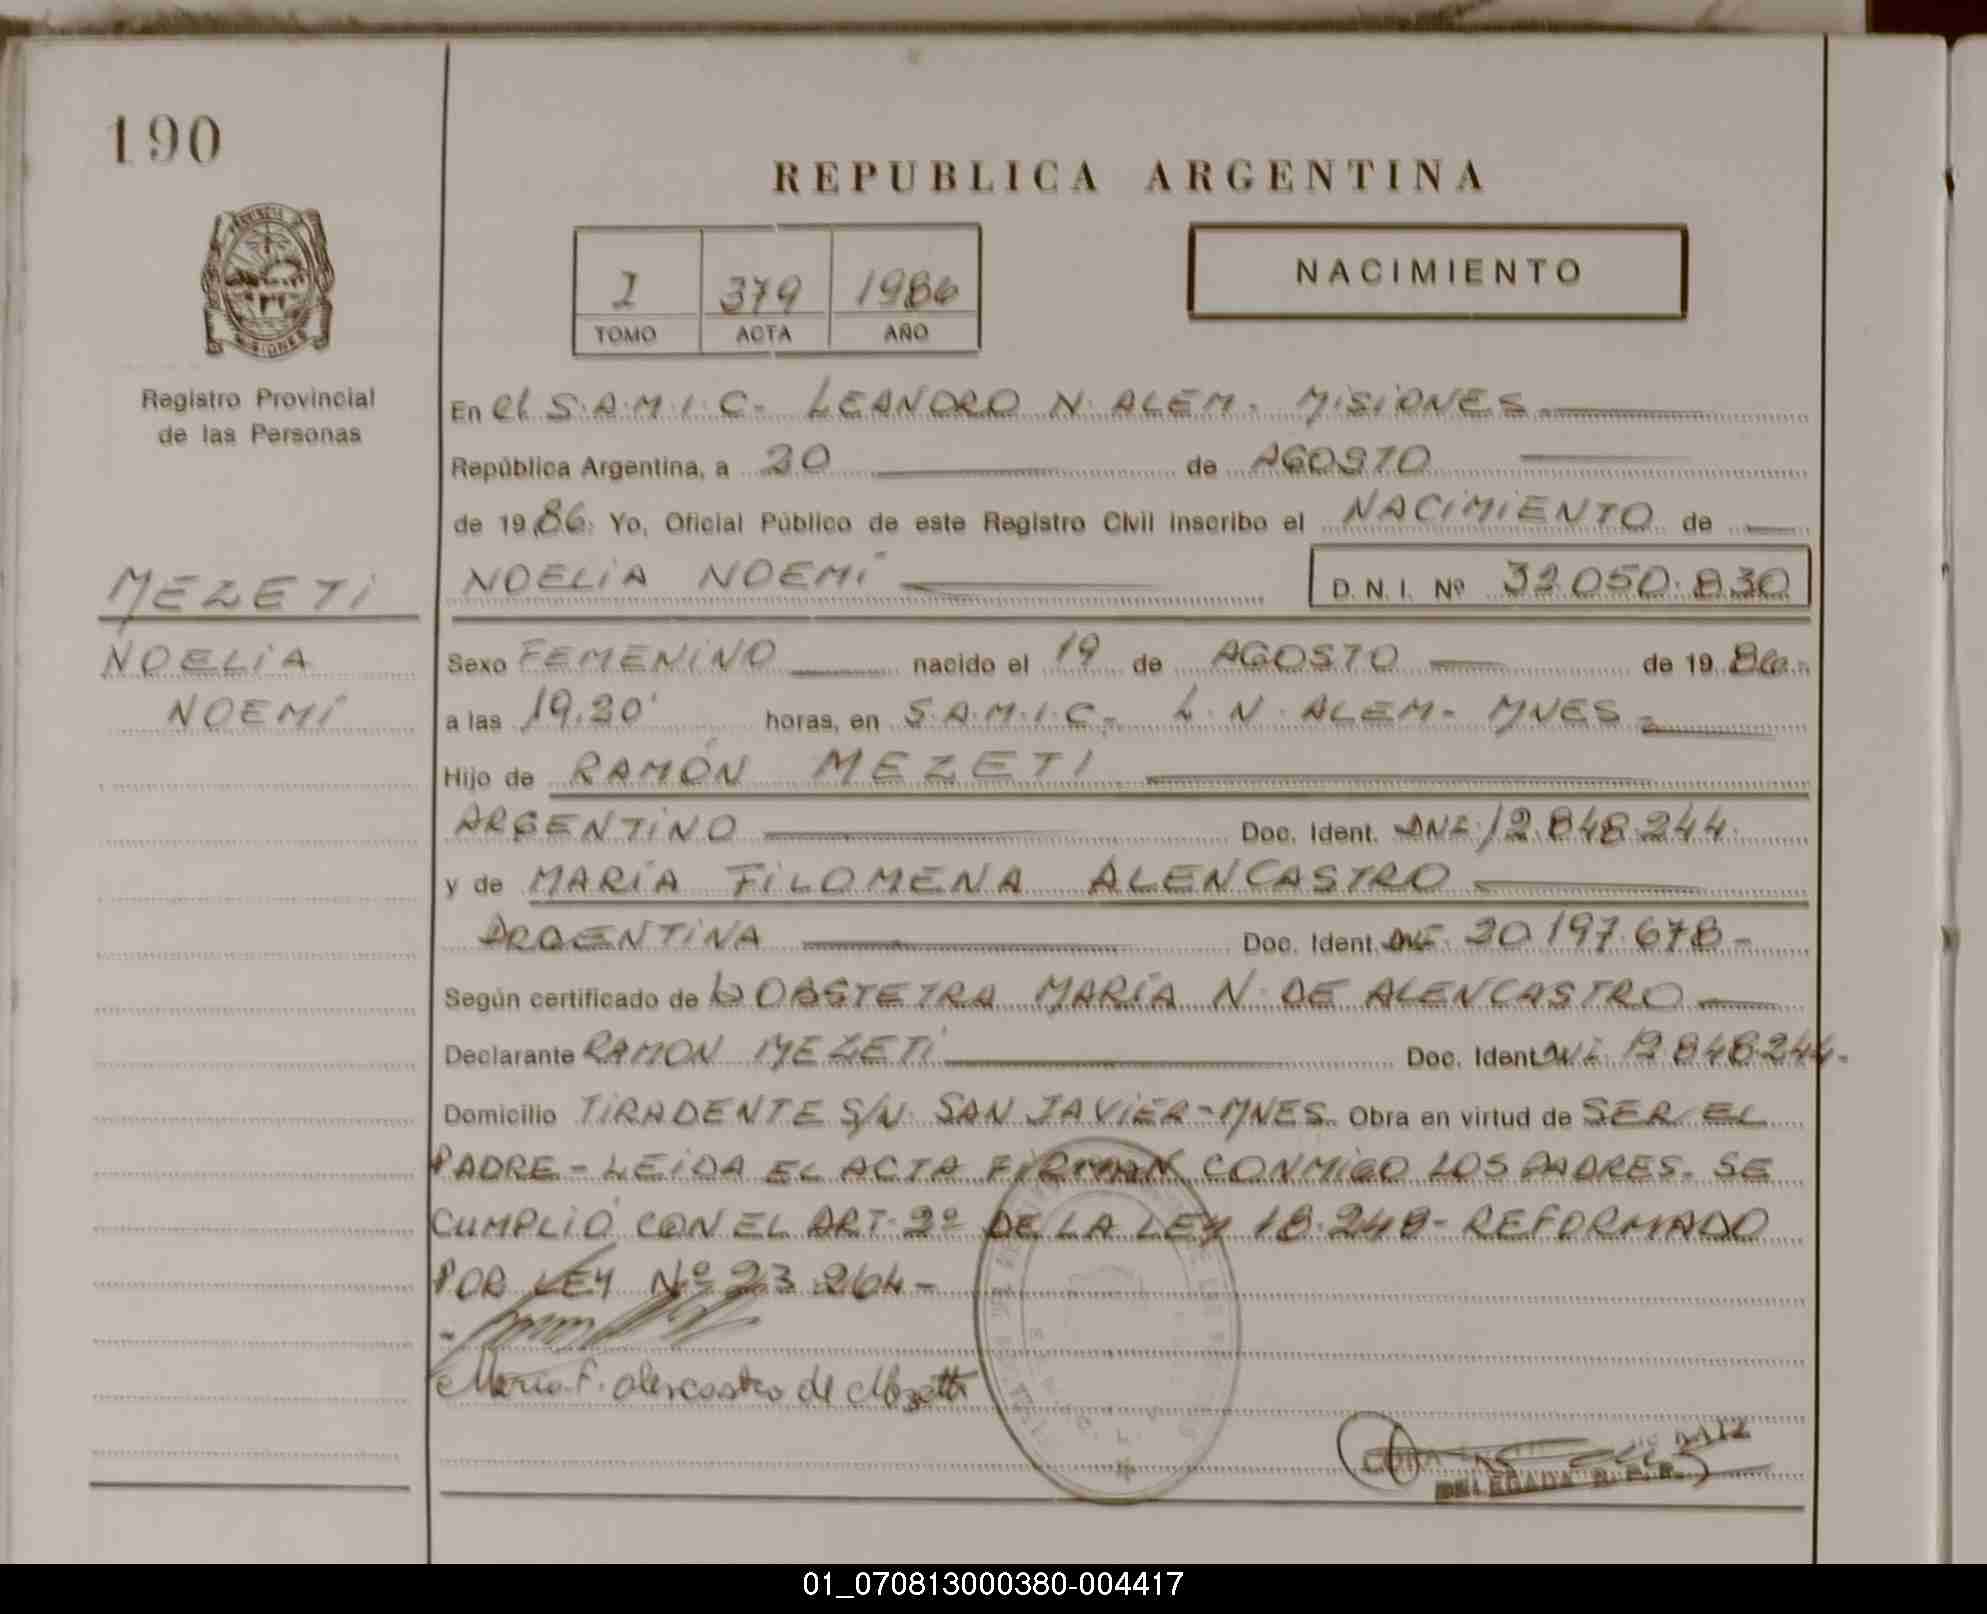 190
REPUBLICA ARGENTINA
PROVINCIA
MISIONES
I 379 1986
TOMO ACTA AÑO
NACIMIENTO
Registro Provincial
de las Personas
En el S.A.M.I.C- LEANDRO N. ALEM - MISIONES
República Argentina, a 20 de AGOSTO
de 1986. Yo, Oficial Público de este Registro Civil inscribo el NACIMIENTO de
MEZETI
NOELIA NOEMÍ D. N. I. Nº 32.050.830
NOELIA
Sexo FEMENINO nacido el 19 de AGOSTO de 1986.-
NOEMÍ
a las 19.20' horas, en S.A.M.I.C- L. N. ALEM - MNES -
Hijo de RAMÓN MEZETI
ARGENTINO Doc. Ident. DNI 12.848.244.
y de MARÍA FILOMENA ALENCASTRO
ARGENTINA Doc. Ident. DNI 20.197.678-
Según certificado de LA OBSTETRA MARÍA N. DE ALENCASTRO
Declarante RAMON MEZETI Doc. Ident DNI 12.848.244-
Domicilio TIRADENTE S/N. SAN JAVIER - MNES. Obra en virtud de SER EL
PADRE - LEIDA EL ACTA FIRMAN CONMIGO LOS PADRES. SE
CUMPLIÓ CON EL ART. 2º DE LA LEY 18.248 - REFORMADO
POR LEY Nº 23.264 -
Maria F. Alencastro de Mezetti
DELEGADA R. P. P.
01_070813000380-004417